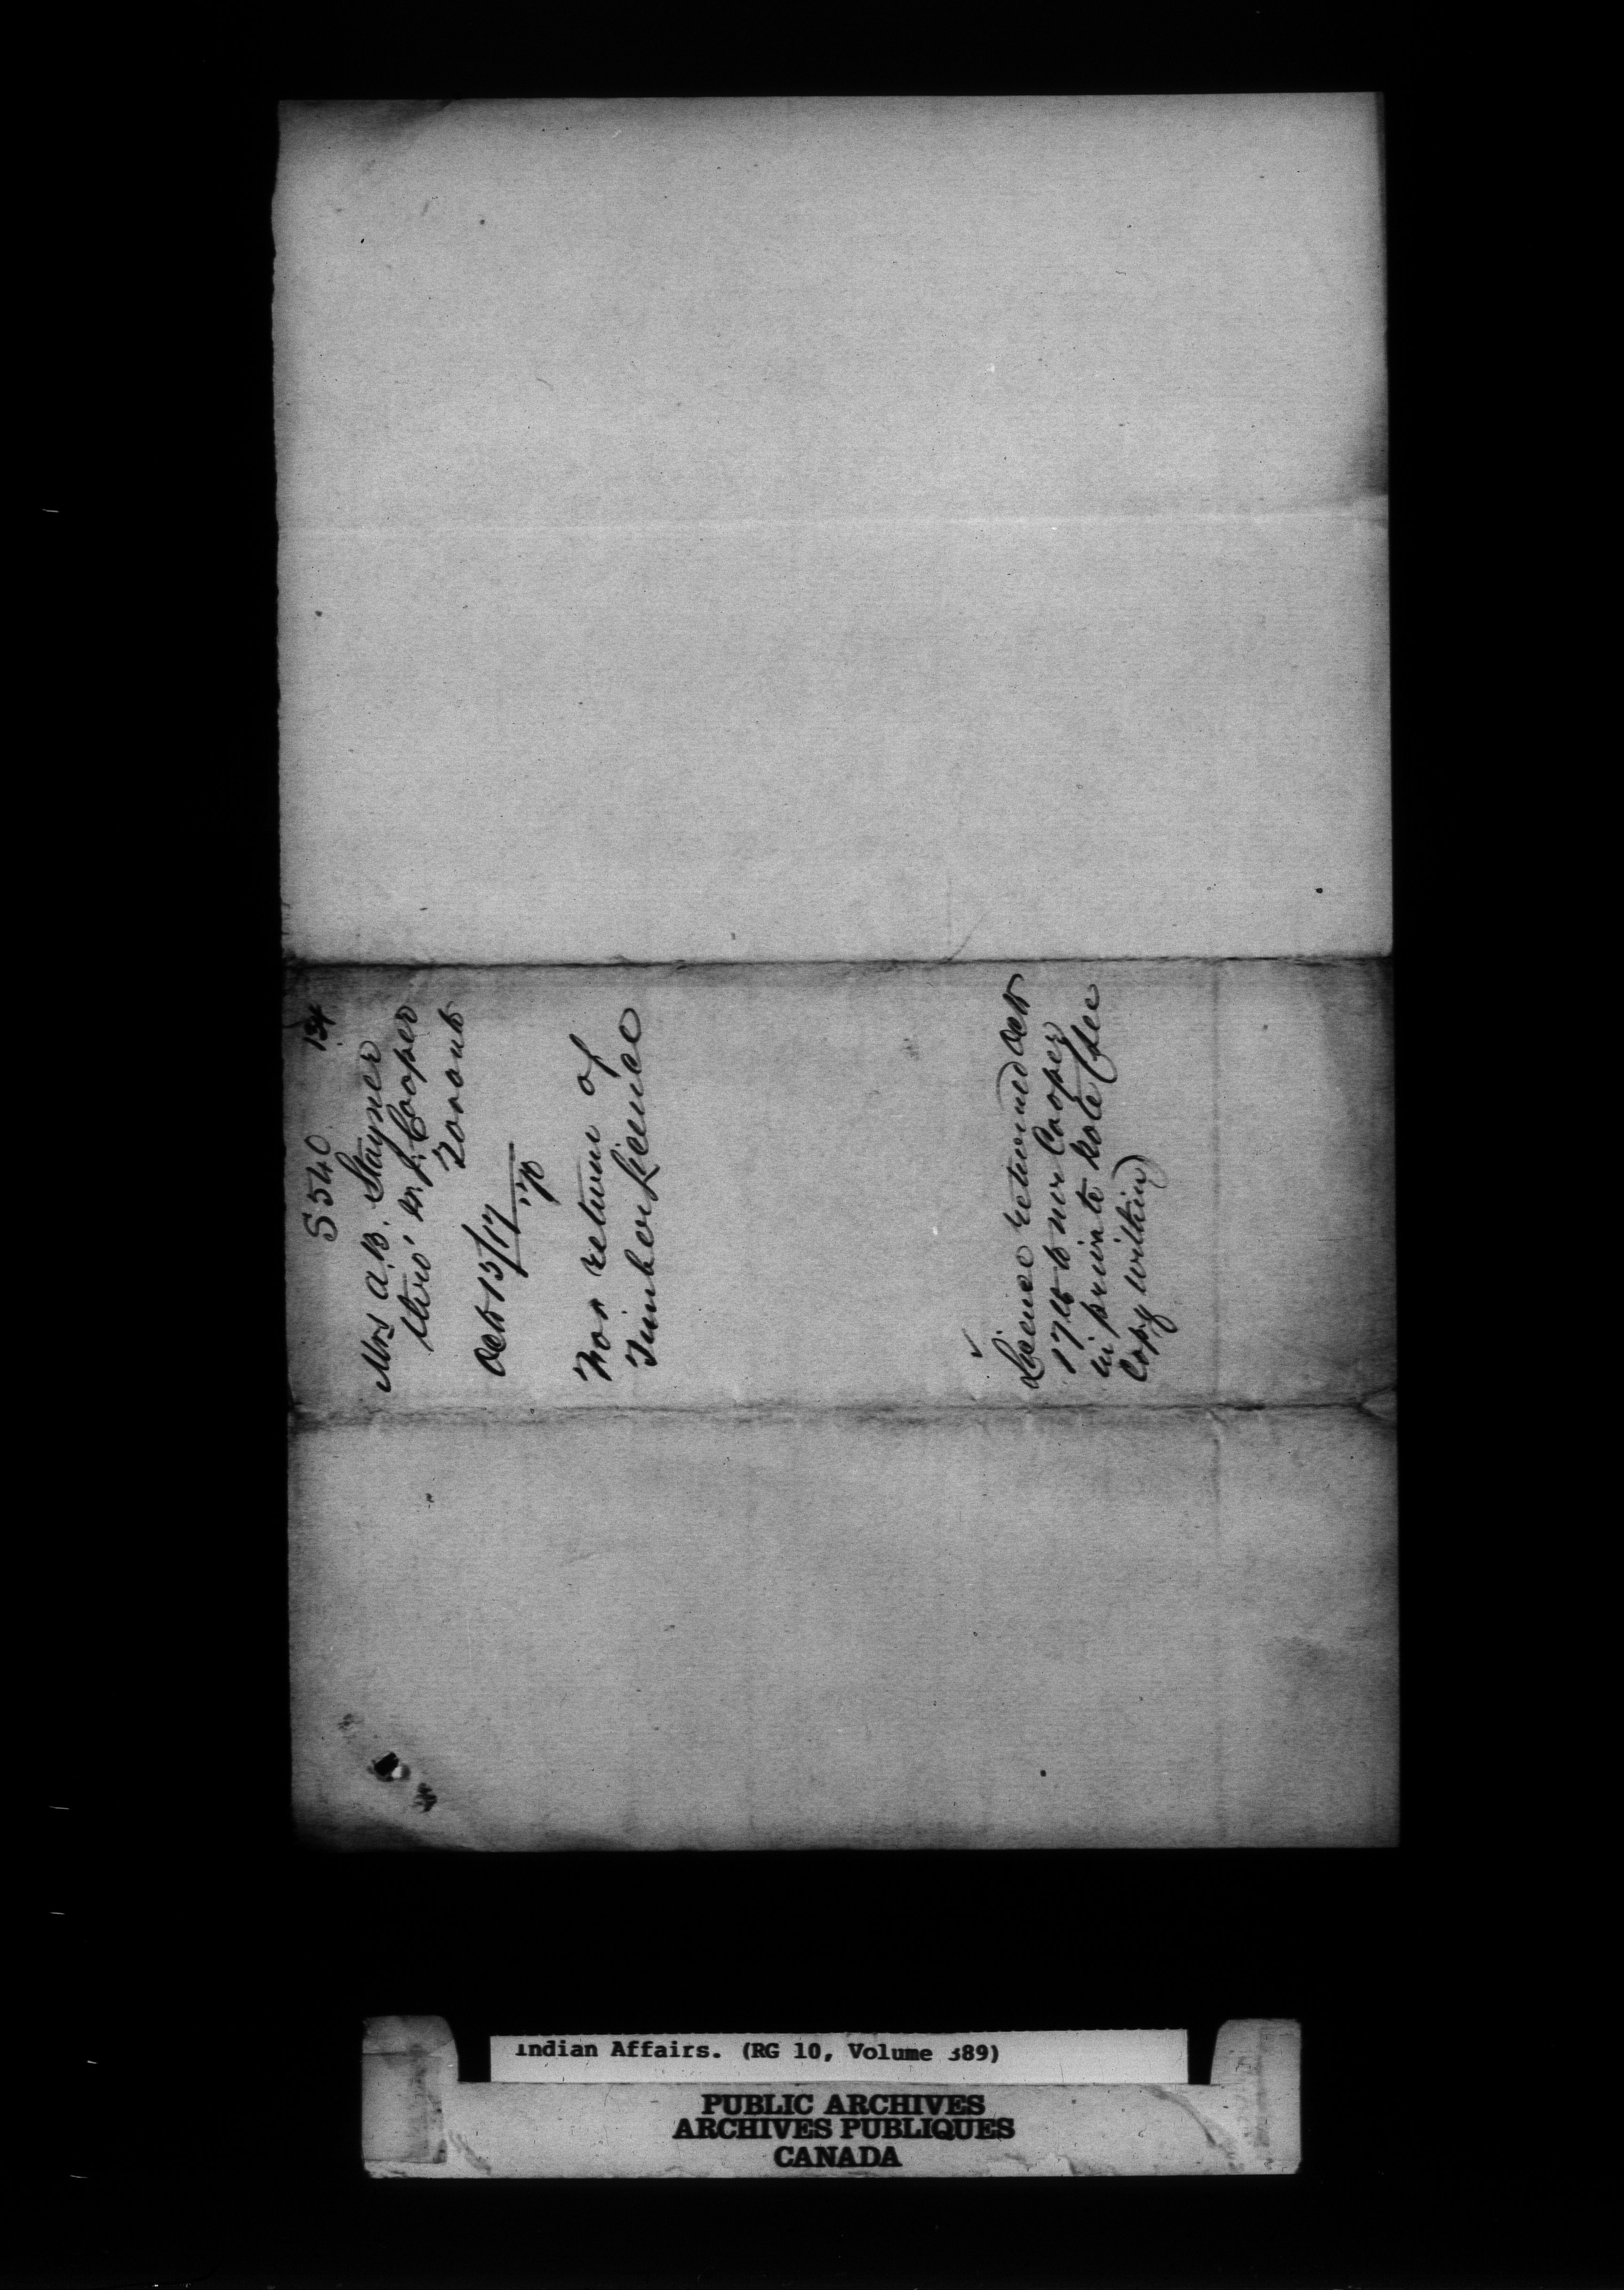 S 540 134
Mrs A.B. Stayner
thro' W. J. Cooper
Toronto
Oct 15/17
"/70
For return of
Timber License
License returned Oct
17th to Mr Cooper
in private note (see
copy within)
Indian Affairs. (RG 10, Volume 389)
PUBLIC ARCHIVES
ARCHIVES PUBLIQUES
CANADA